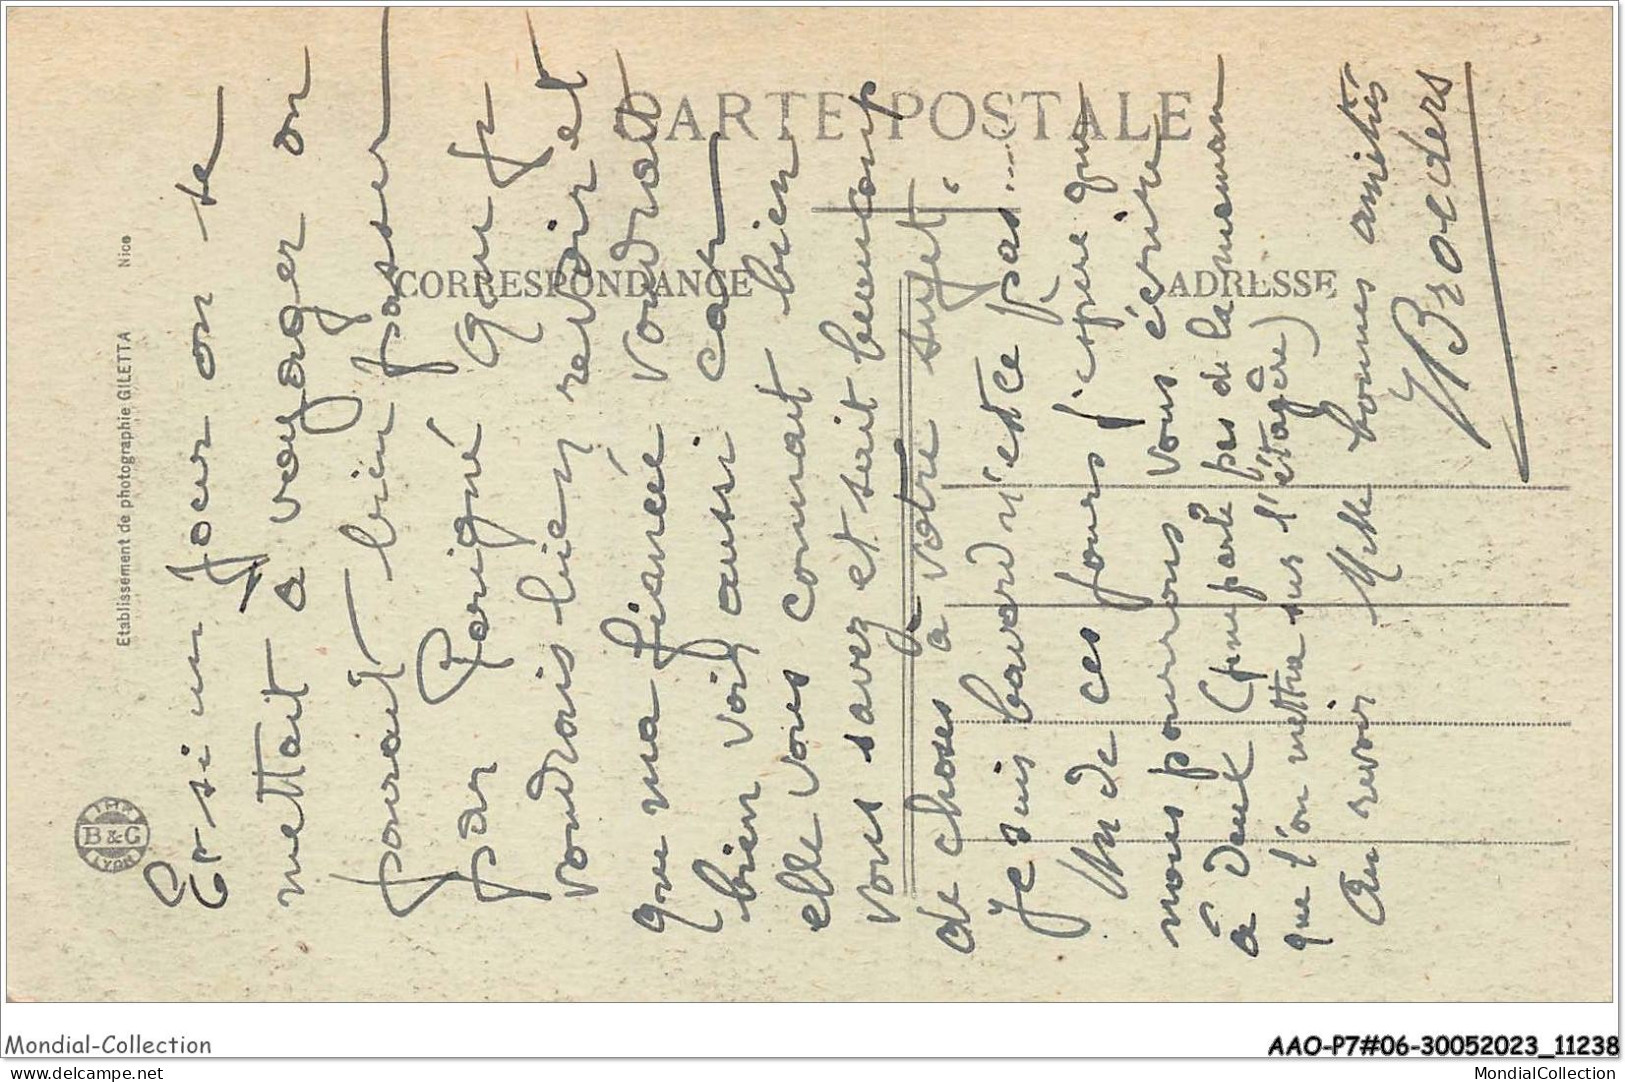 CARTE POSTALE
CORRESPONDANCE
ADRESSE
Etablissement de photographie GILETTA Nice
IMP
B & G
LYON
Et si un jour on se
mettait à voyager on
pourait bien passer
par Perigné que je
voudrais bien revoir et
que ma fiancée voudrait
bien voir aussi car
elle vous connait bien
vous savez et sait beaucoup
de choses à votre sujet.
Je suis bavard n'est ce pas ...
Un de ces jours j'espère que
nous pourrons vous écrire
à deux (peu importe pas de la maman
que l'on mettra sur l'étagère)
Au revoir Melle bonnes amitiés
YBroeders
Mondial-Collection
AAO-P7#06-30052023_11238
www.delcampe.net
MondialCollection